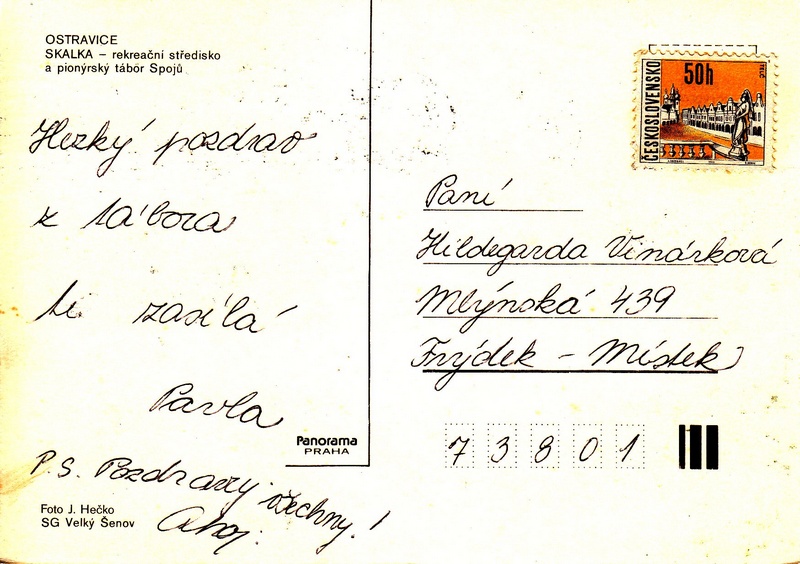 OSTRAVICE
SKALKA – rekreační středisko
a pionýrský tábor Spojů
Hezký pozdrav
z tábora
ti zasílá
Pavla
P.S. Pozdravuj všechny!
Ahoj.
Foto J. Hečko
SG Velký Šenov
Panorama
PRAHA
ČESKOSLOVENSKO
50h
TELČ
Paní
Hildegarda Vinárková
Mlýnská 439
Frýdek - Místek
73801